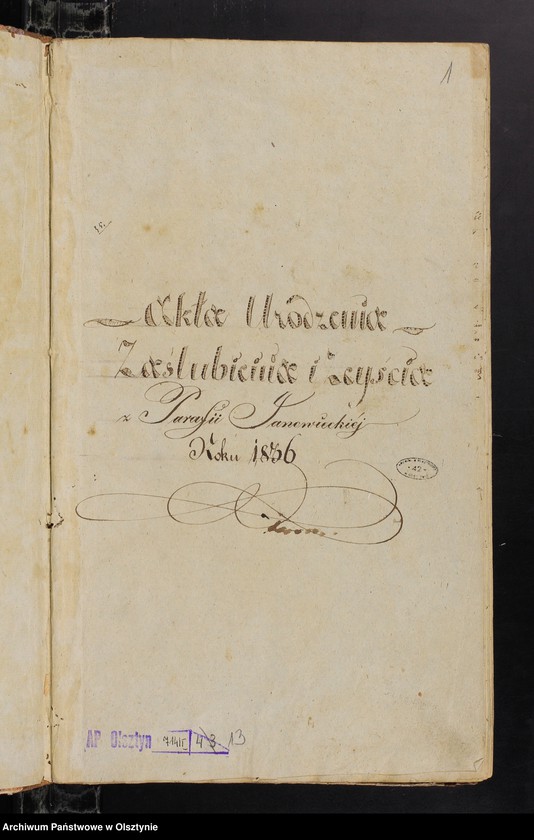 1
Akta Urodzenia
Zaślubienia i Zeyścia
z Parafii Janowieckiéj
Roku 1836
AP Olsztyn 714/I 43 13
Archiwum Państwowe w Olsztynie